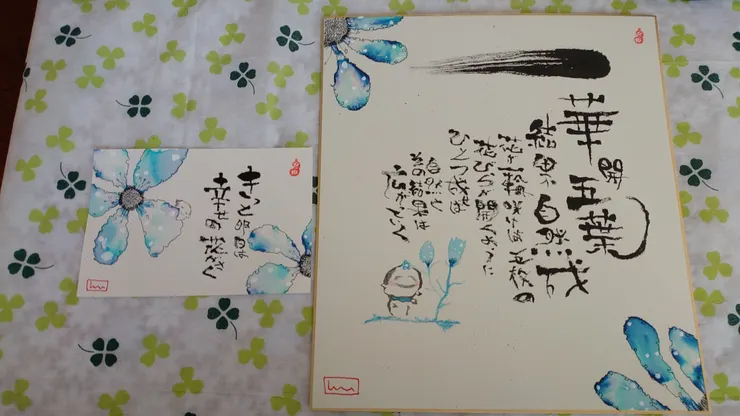 一華開五葉
結果自然成
花が一輪咲けば五枚の
花びらが開くように
ひとつ成せば
自然と
その結果は
広がっていく
きっと明日は
幸せの